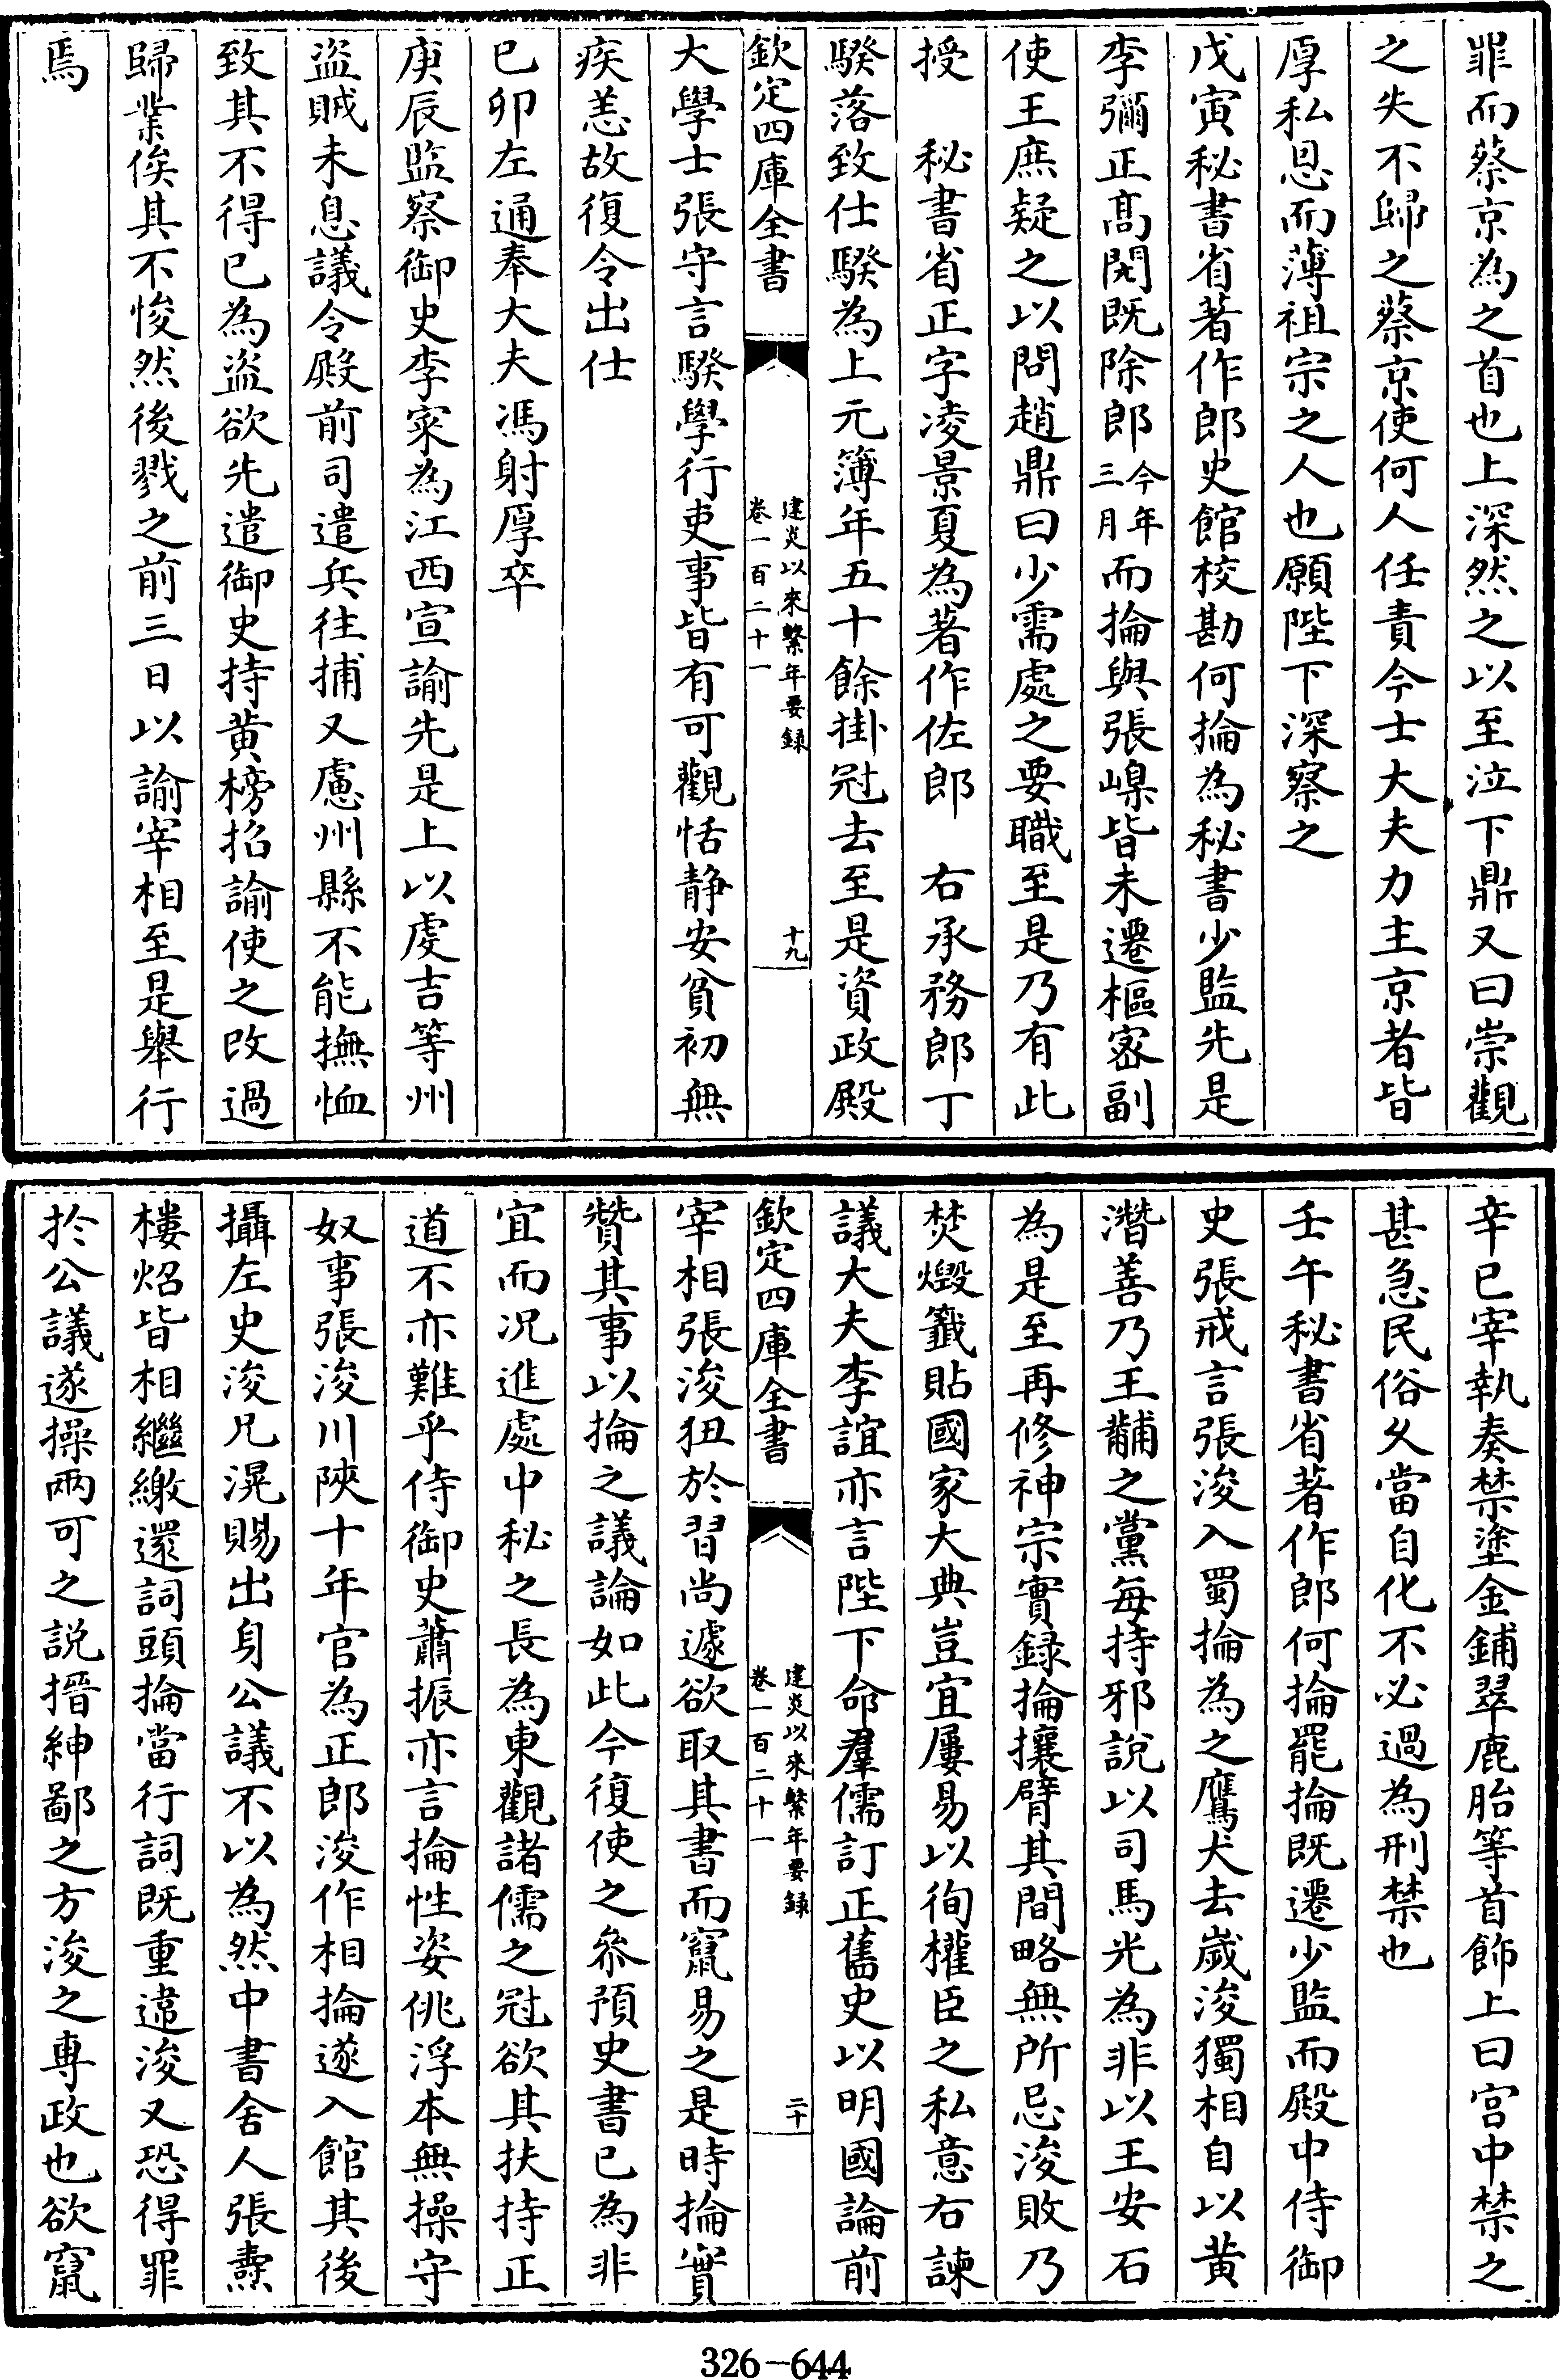 罪而蔡京為之首也上深然之以至泣下鼎又曰崇觀
之失不歸之蔡京使何人任責今士大夫力主京者皆
厚私恩而薄祖宗之人也願陛下深察之
戊寅秘書省著作郎史館校勘何掄為秘書少監先是
李彌正高閌既除郎今年三月而掄與張嵲皆未遷樞密副
使王庶疑之以問趙鼎曰少需處之要職至是乃有此
授　秘書省正字凌景夏為著作佐郎　右承務郎丁
騤落致仕騤為上元簿年五十餘掛冠去至是資政殿
欽定四庫全書
建炎以來繫年要録
卷一百二十一
十九
大學士張守言騤學行吏事皆有可觀恬靜安貧初無
疾恙故復令出仕
已卯左通奉大夫馮躬厚卒
庚辰監察御史李寀為江西宣諭先是上以虔吉等州
盜賊未息議令殿前司遣兵往捕又慮州縣不能撫恤
致其不得已為盜欲先遣御史持黄榜招諭使之改過
歸業俟其不悛然後戮之前三日以諭宰相至是舉行
焉
辛巳宰執奏禁塗金鋪翠鹿胎等首飾上曰宫中禁之
甚急民俗久當自化不必過為刑禁也
壬午秘書省著作郎何掄罷掄既遷少監而殿中侍御
史張戒言張浚入蜀掄為之鷹犬去歲浚獨相自以黄
潛善乃王黼之黨每持邪說以司馬光為非以王安石
為是至再修神宗實録掄攘臂其間略無所忌浚敗乃
焚燬籤貼國家大典豈宜屢易以徇權臣之私意右諫
議大夫李誼亦言陛下命羣儒訂正舊史以明國論前
欽定四庫全書
建炎以來繫年要録
卷一百二十一
二十
宰相張浚狃於習尚遽欲取其書而竄易之是時掄實
贊其事以掄之議論如此今復使之叅預史書已為非
宜而况進處中秘之長為東觀諸儒之冠欲其扶持正
道不亦難乎侍御史蕭振亦言掄性姿佻浮本無操守
奴事張浚川陝十年官為正郎浚作相掄遂入館其後
攝左史浚兄滉賜出身公議不以為然中書舍人張燾
樓炤皆相繼繳還詞頭掄當行詞既重違浚又恐得罪
扵公議遂操兩可之説搢紳鄙之方浚之專政也欲竄
326-644